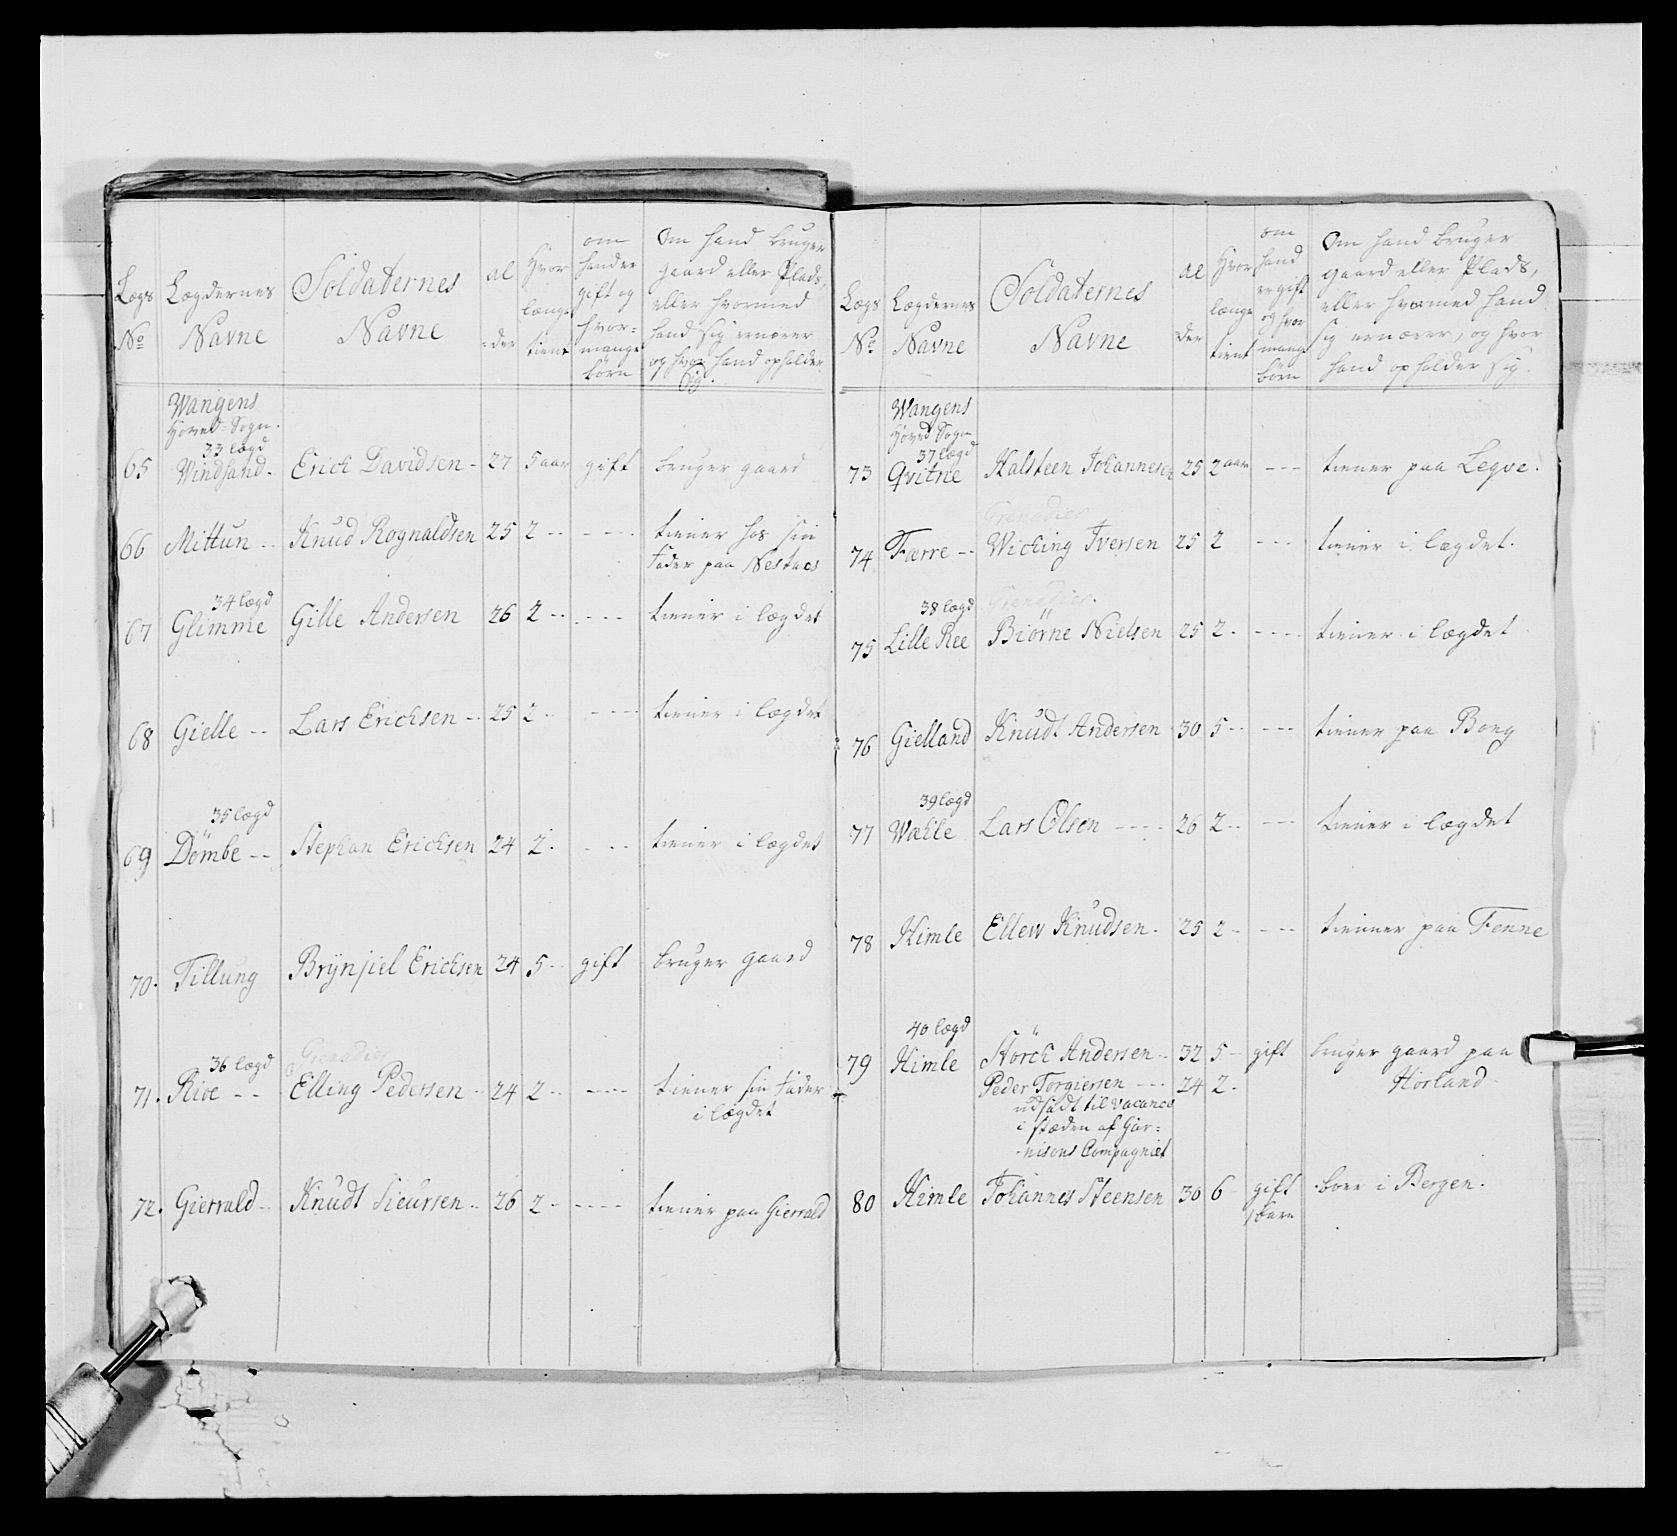 Lægs No
Lægdernes Navne
Soldaternes Navne
al=der
Hvor længe tient
om hander gift og hvor= mange børn
Om hand bruger
gaard eller Plads,
eller hvormed
hand sig ernærer
og hvor hand opholder
sig.
Wangens
Hoved-Sogn.
33 lægd
65 Windsand - Erich Davidsen - 27 5 aar gift bruger gaard
66 Mittun -- Knud Rognaldsen 25 2 -- ---- tiener hos sin
fader paa Nestaas
34 lægd
67 Glimme Gille Andersen 26 2 -- ---- tiener i lægdet
68 Gielle -- Lars Erichsen -- 25 2 -- ---- tiener i lægdet
35 lægd
69 Dömbe -- Stephan Erichsen 24 2 . --- tiener i lægdet
70. Tillung Brynjiel Erichsen 24 5 -- gift bruger gaard
36 lægd Grenadier
71. Rioe -- Elling Pedersen -- 24 2 -- ---- tiener sin fader
i lægdet
72. Gierrald -- Knudt Sieursen -- 26 2 -- ---- tiener paa Gierrald
Lægs No
Lægdernes Navne
Soldaternes Navne
al der
Hvor længe tient
om hand er gift og hvor mange børn
Om hand bruger
gaard eller Plads,
eller hvormed hand
sig ernærer, og hvor
hand opholder sig.
Wangens
Hoved Sogn
37 lægd
73 Qvitne Halsteen Johannesen 25 2 aar --- tiener paa Leqve.
Grenadier
74 Færre -- Wiching Iversen 25 2 --- tiener i lægdet.
38 lægd Grenadier.
75 Lille Ree Biörne Nielsen 25 2 - ---- tiener i lægdet
76 Gielland Knudt Andersen 30 5 -- --- tiener paa Bong
39 lægd
77 Wæhle Lars Olsen ---- 26 2 -- --- tiener i lægdet
78 Himle Ellew Knudsen - 25 2 - --- tienner paa Fenne
40 lægd
79 Himle Störck Andersen -- 32 5 - gift bruger gaard paa
Hörland
Peder Torgiersen --- 24 2 -
udsadt til vacance
i stæden af Gar=
nisons Compagniet
80 Himle Johannes Steensen 30 6 - gift boer i Bergen.
1 barn